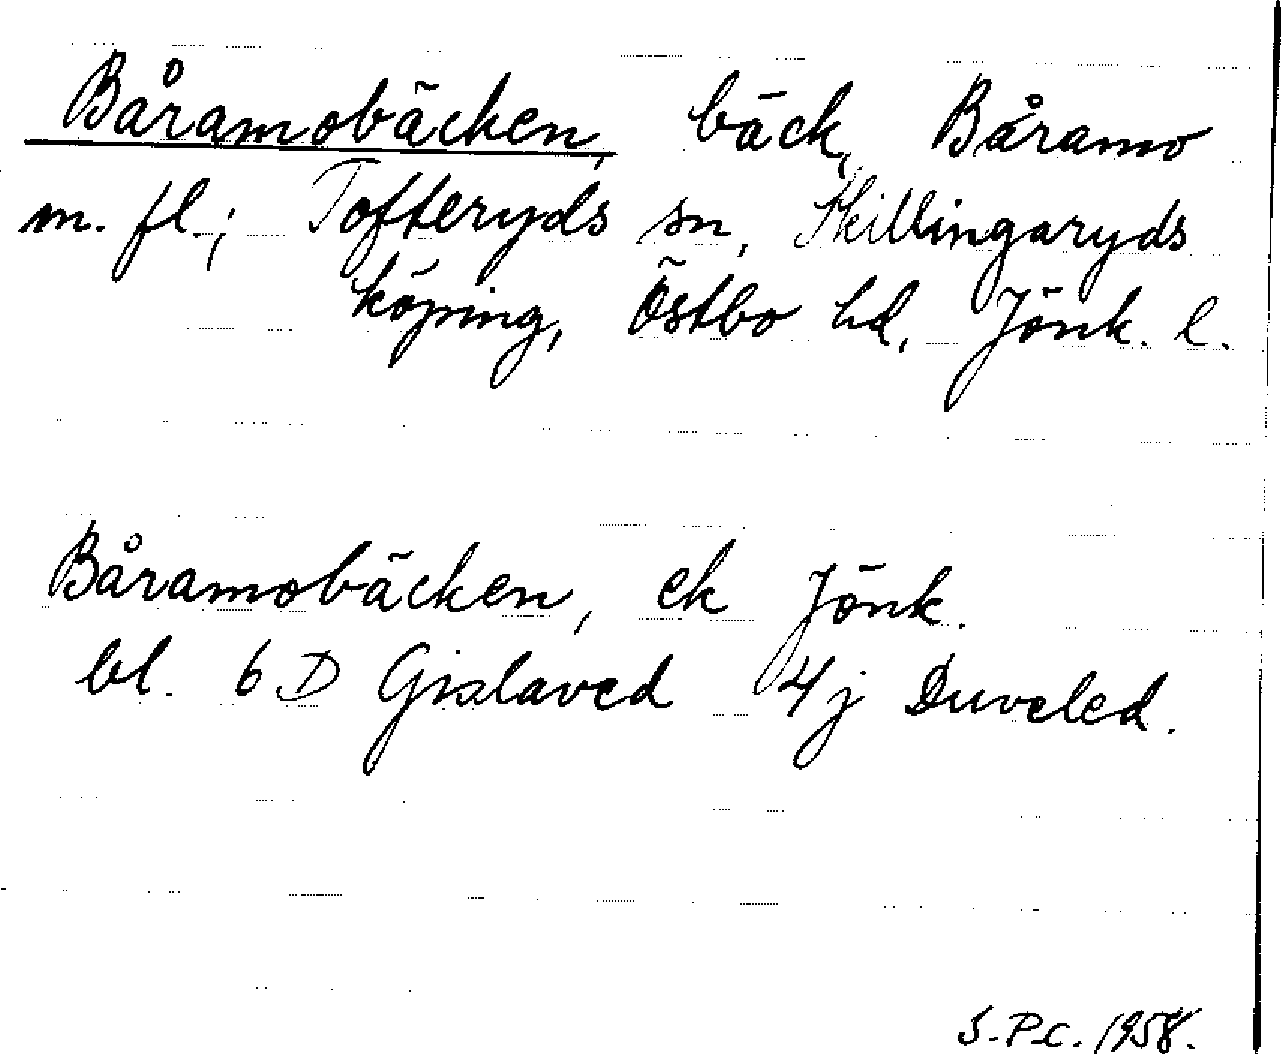 Båramobäcken, bäck, Båramo
m. fl.; Tofteryds sn, Skillingaryds
köping, Östbo hd, Jönk. l.
Båramobäcken, ek Jönk.
bl. 6 D Gislaved 4j Duveled.
S.P.c. 1958.